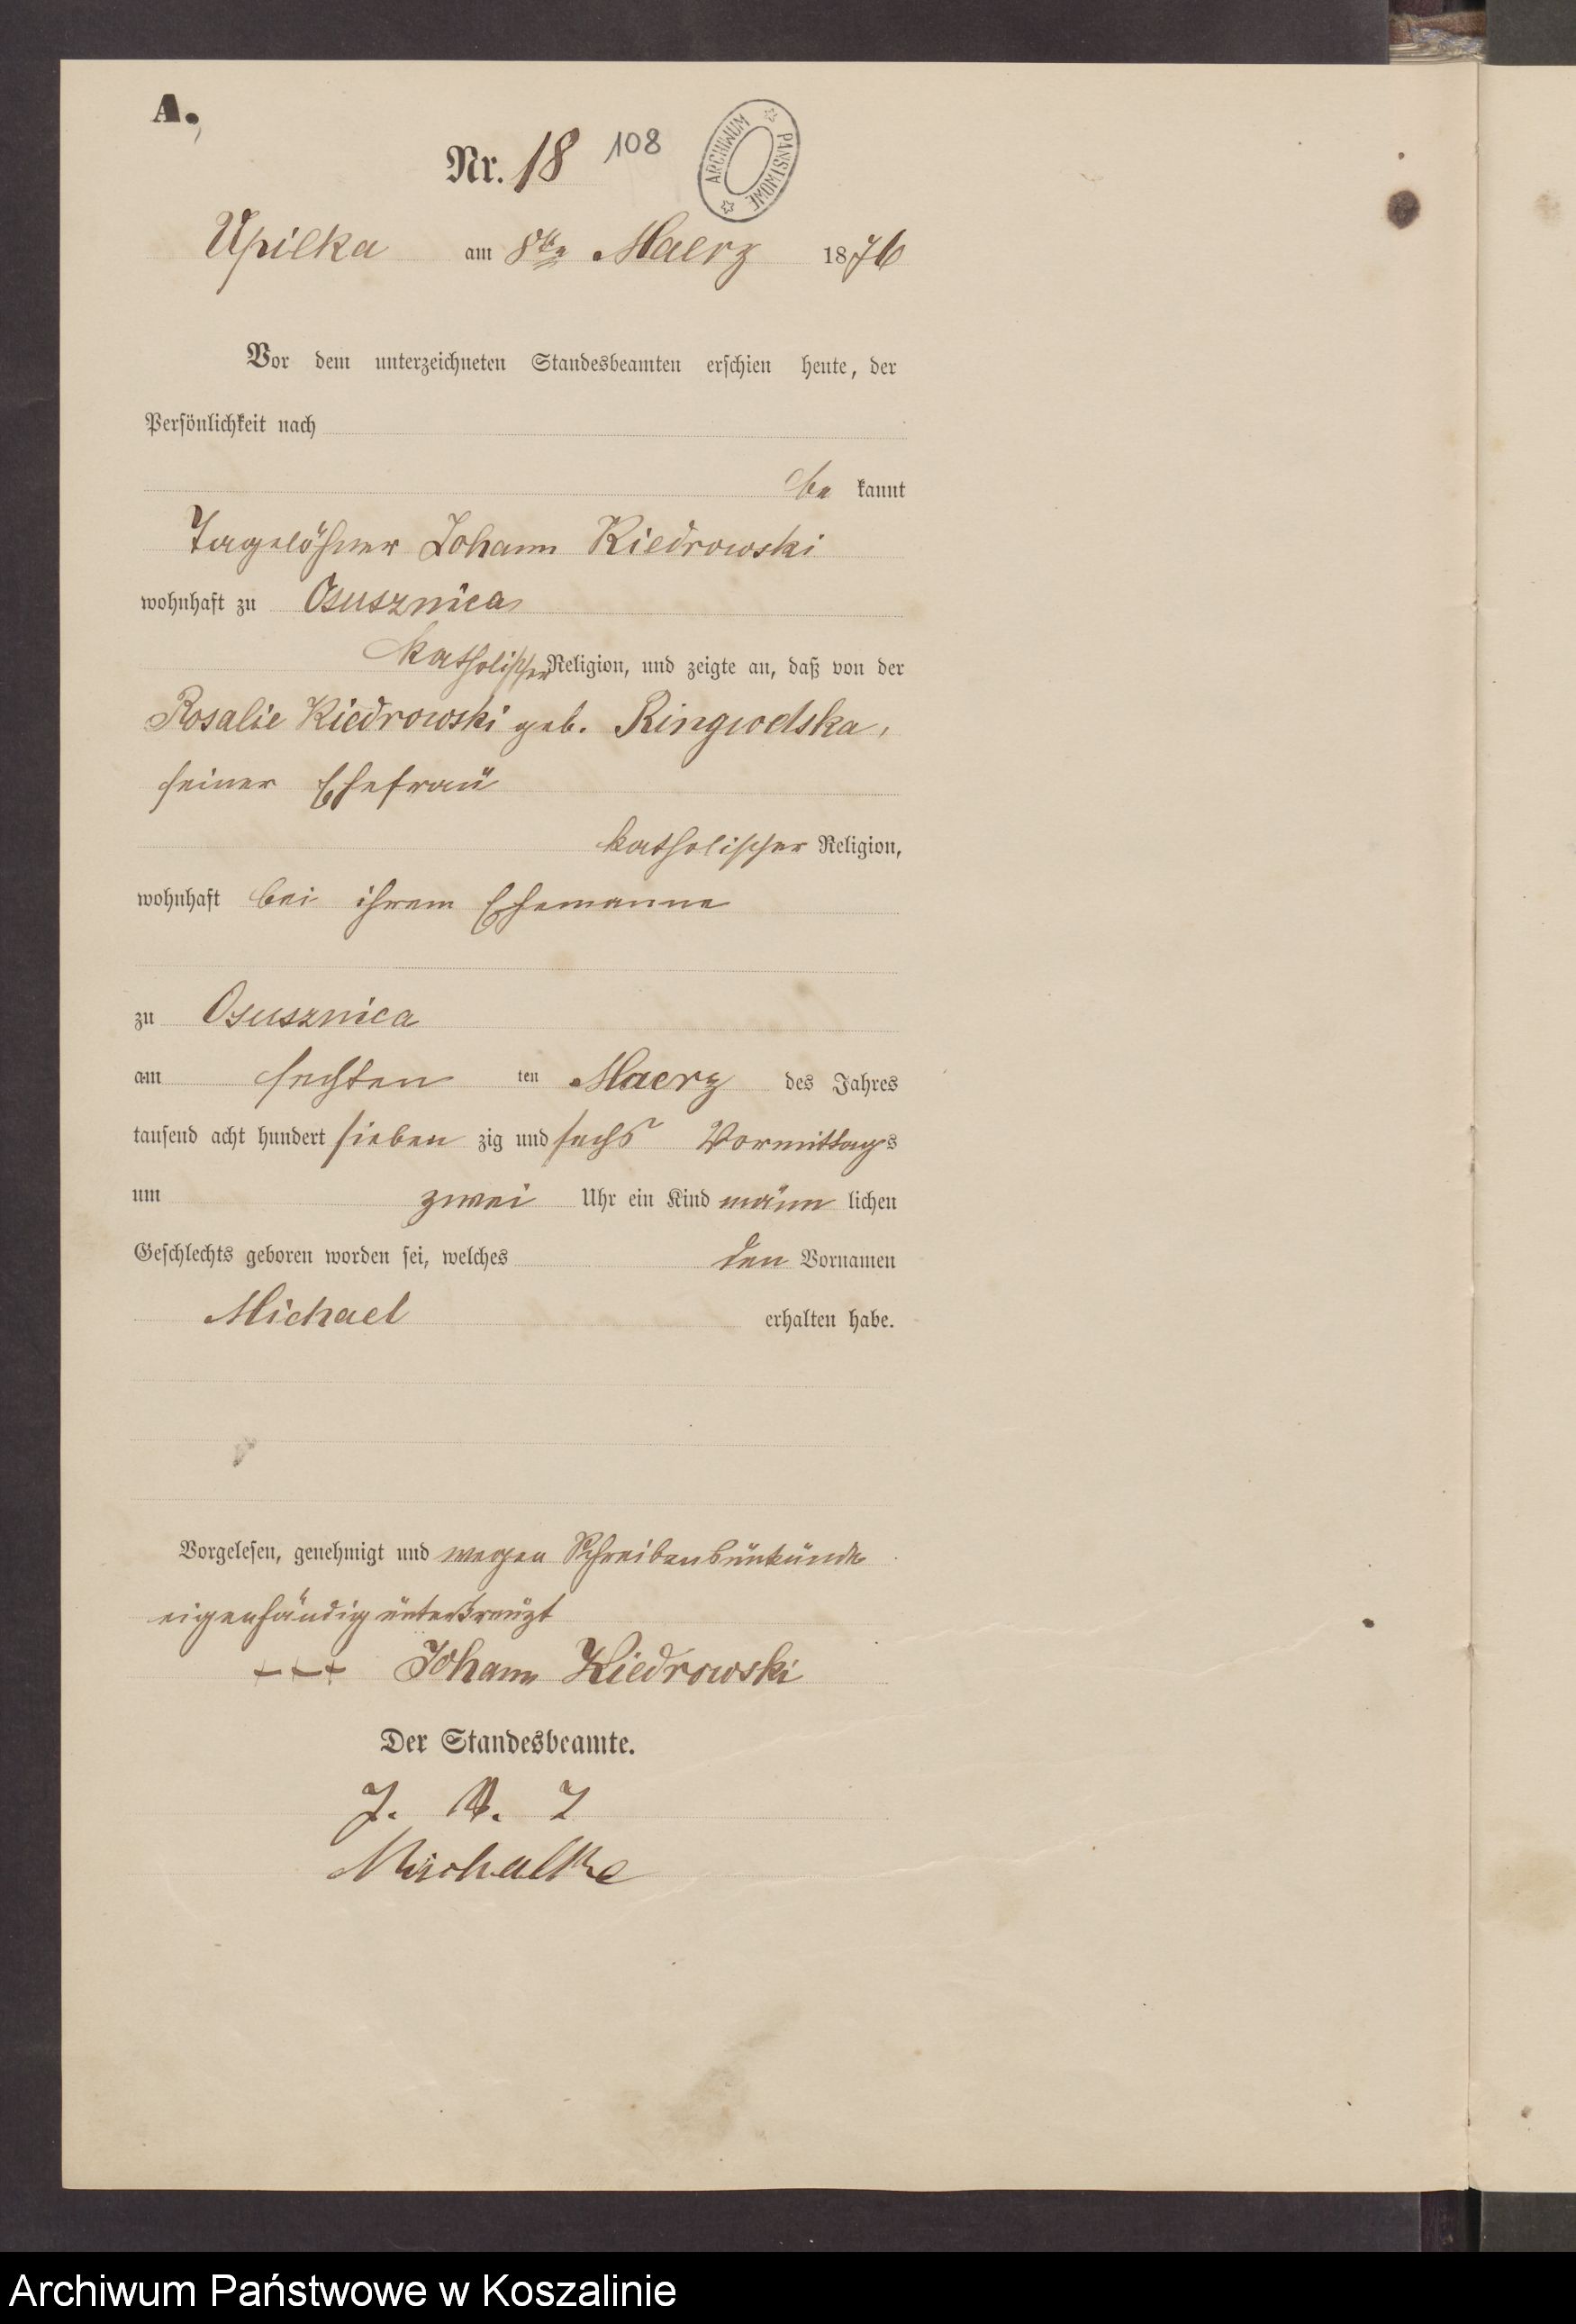 A.
Nr. 18 108
ARCHIWUM PAŃSTWOWE
Upilka am 8ten Maerz 1876
Vor dem unterzeichneten Standesbeamten erschien heute, der
Persönlichkeit nach
be kannt
Tagelöhner Johann Kiedrowski
wohnhaft zu Osusznica
katholischer Religion, und zeigte an, daß von der
Rosalie Kiedrowski geb. Ringwelska,
seiner Ehefrau
katholischer Religion,
wohnhaft bei ihrem Ehemanne
zu Osusznica
am sechsten ten Maerz des Jahres
tausend acht hundert sieben zig und sechs Vormittags
um zwei Uhr ein Kind männ lichen
Geschlechts geboren worden sei, welches den Vornamen
Michael erhalten habe.
Vorgelesen, genehmigt und wegen Schreibensunkunde
eigenhändig unterkreuzt
+++ Johann Kiedrowski
Der Standesbeamte.
J. V.
Michalke
Archiwum Państwowe w Koszalinie